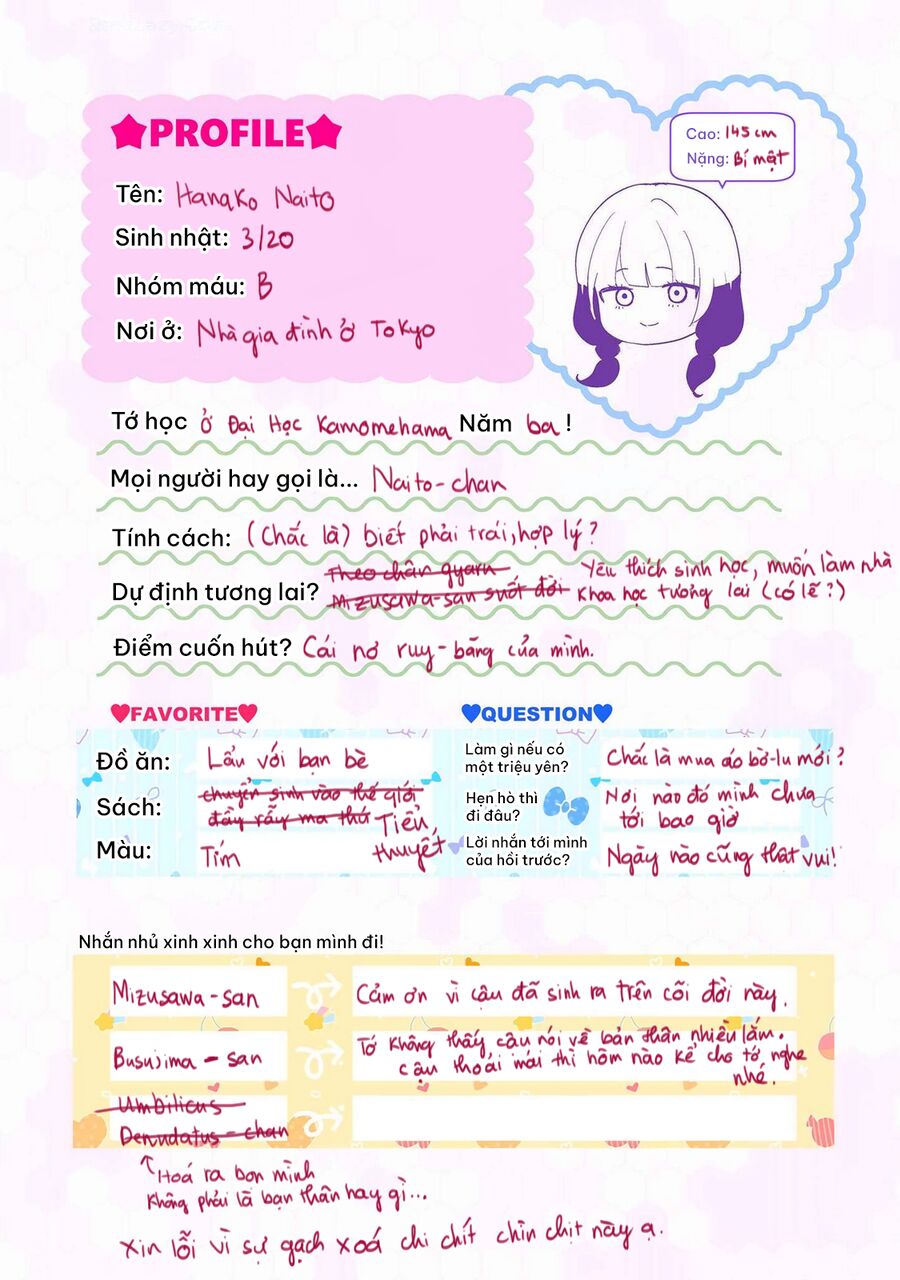 ★PROFILE★
Cao: 145 cm
Nặng: Bí mật
Tên: Hanako Naito
Sinh nhật: 3/20
Nhóm máu: B
Nơi ở: Nhà gia đình ở Tokyo
Tớ học ở Đại Học Kamomehama Năm ba!
Mọi người hay gọi là... Naito-chan
Tính cách: (Chắc là) biết phải trái, hợp lý?
Dự định tương lai? Theo chân gyaru Mizusawa-san suốt đời
Yêu thích sinh học, muốn làm nhà
khoa học tương lai (có lẽ?)
Điểm cuốn hút? Cái nơ ruy-băng của mình.
♥FAVORITE♥
Đồ ăn: Lẩu với bạn bè
Sách: chuyển sinh vào thế giới
đầy rẫy ma thú Tiểu thuyết
Màu: Tím
♥QUESTION♥
Làm gì nếu có
một triệu yên? Chắc là mua áo bờ-lu mới?
Hẹn hò thì
đi đâu? Nơi nào đó mình chưa
tới bao giờ
Lời nhắn tới mình
của hồi trước? Ngày nào cũng thật vui!
Nhắn nhủ xinh xinh cho bạn mình đi!
Mizusawa-san Cảm ơn vì cậu đã sinh ra trên cõi đời này.
Busujima-san Tớ không thấy cậu nói về bản thân nhiều lắm.
Cậu thoải mái thì hôm nào kể cho tớ nghe
nhé.
Umbilicus
Denudatus-chan
Hoá ra bọn mình
không phải là bạn thân hay gì...
Xin lỗi vì sự gạch xoá chi chít chìn chịt này ạ.